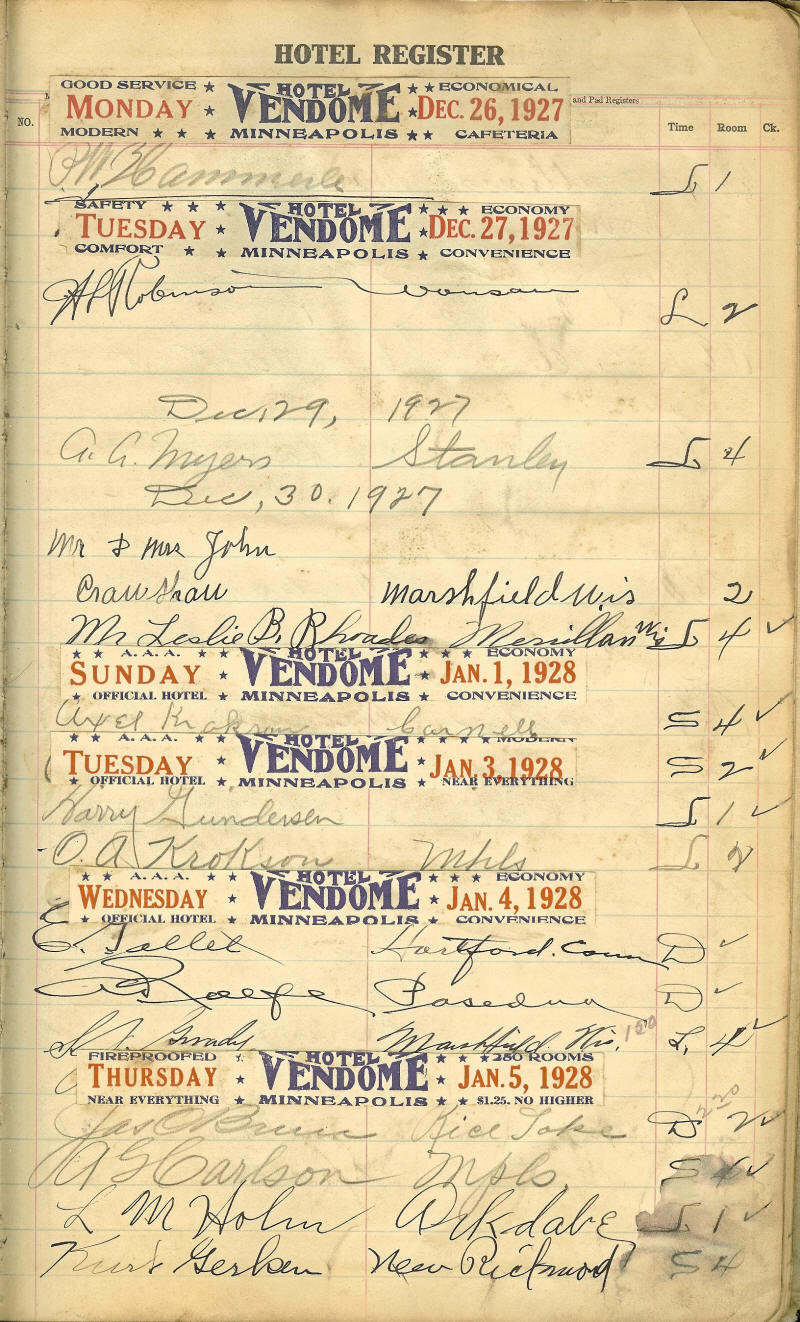 HOTEL REGISTER
and Pad Registers
NO. Time Room Ck.
GOOD SERVICE ★ HOTEL ★ ★ ECONOMICAL
MONDAY ★ VENDOME ★ DEC. 26, 1927
MODERN ★ ★ ★ MINNEAPOLIS ★ ★ CAFETERIA
Hammerle L 1
SAFETY ★ ★ ★ HOTEL ★ ★ ★ ECONOMY
TUESDAY ★ VENDOME ★ DEC. 27, 1927
COMFORT ★ ★ MINNEAPOLIS ★ CONVENIENCE
Robinson Wausau L 2
Dec, 29, 1927
A. A. Myers Stanley L 4
Dec, 30. 1927
Mr & Mrs John
Crawshaw Marshfield Wis 2
Mr Leslie B. Rhoades Merrillan Wis L 4 ✓
★ ★ A.A.A. ★ ★ HOTEL ★ ★ ★ ECONOMY
SUNDAY ★ VENDOME ★ JAN. 1, 1928
★ OFFICIAL HOTEL ★ MINNEAPOLIS ★ CONVENIENCE
Axel S 4 ✓
★ ★ A.A.A. ★ ★ HOTEL ★ ★ ★ MODERN
TUESDAY ★ VENDOME ★ JAN. 3, 1928
★ OFFICIAL HOTEL ★ MINNEAPOLIS ★ NEAR EVERYTHING
S 2 ✓
Harry Gundersen L 1 ✓
O. A Krokson Mpls L 2
★ ★ A.A.A. ★ ★ HOTEL ★ ★ ★ ECONOMY
WEDNESDAY ★ VENDOME ★ JAN. 4, 1928
★ OFFICIAL HOTEL ★ MINNEAPOLIS ★ CONVENIENCE
E. Hartford. Conn D ✓
D ✓
Grady Marshfield. Wis. 150 L. 4 ✓
FIREPROOFED ★ HOTEL ★ ★ 250 ROOMS
THURSDAY ★ VENDOME ★ JAN. 5, 1928
NEAR EVERYTHING ★ MINNEAPOLIS ★ $1.25. NO HIGHER
Jas O Brien Rice Lake D 2 ✓
A G Carlson Mpls. S 4 ✓
L M Holm Arkdale L 1 ✓
Kurt Gerken New Richmond S 4